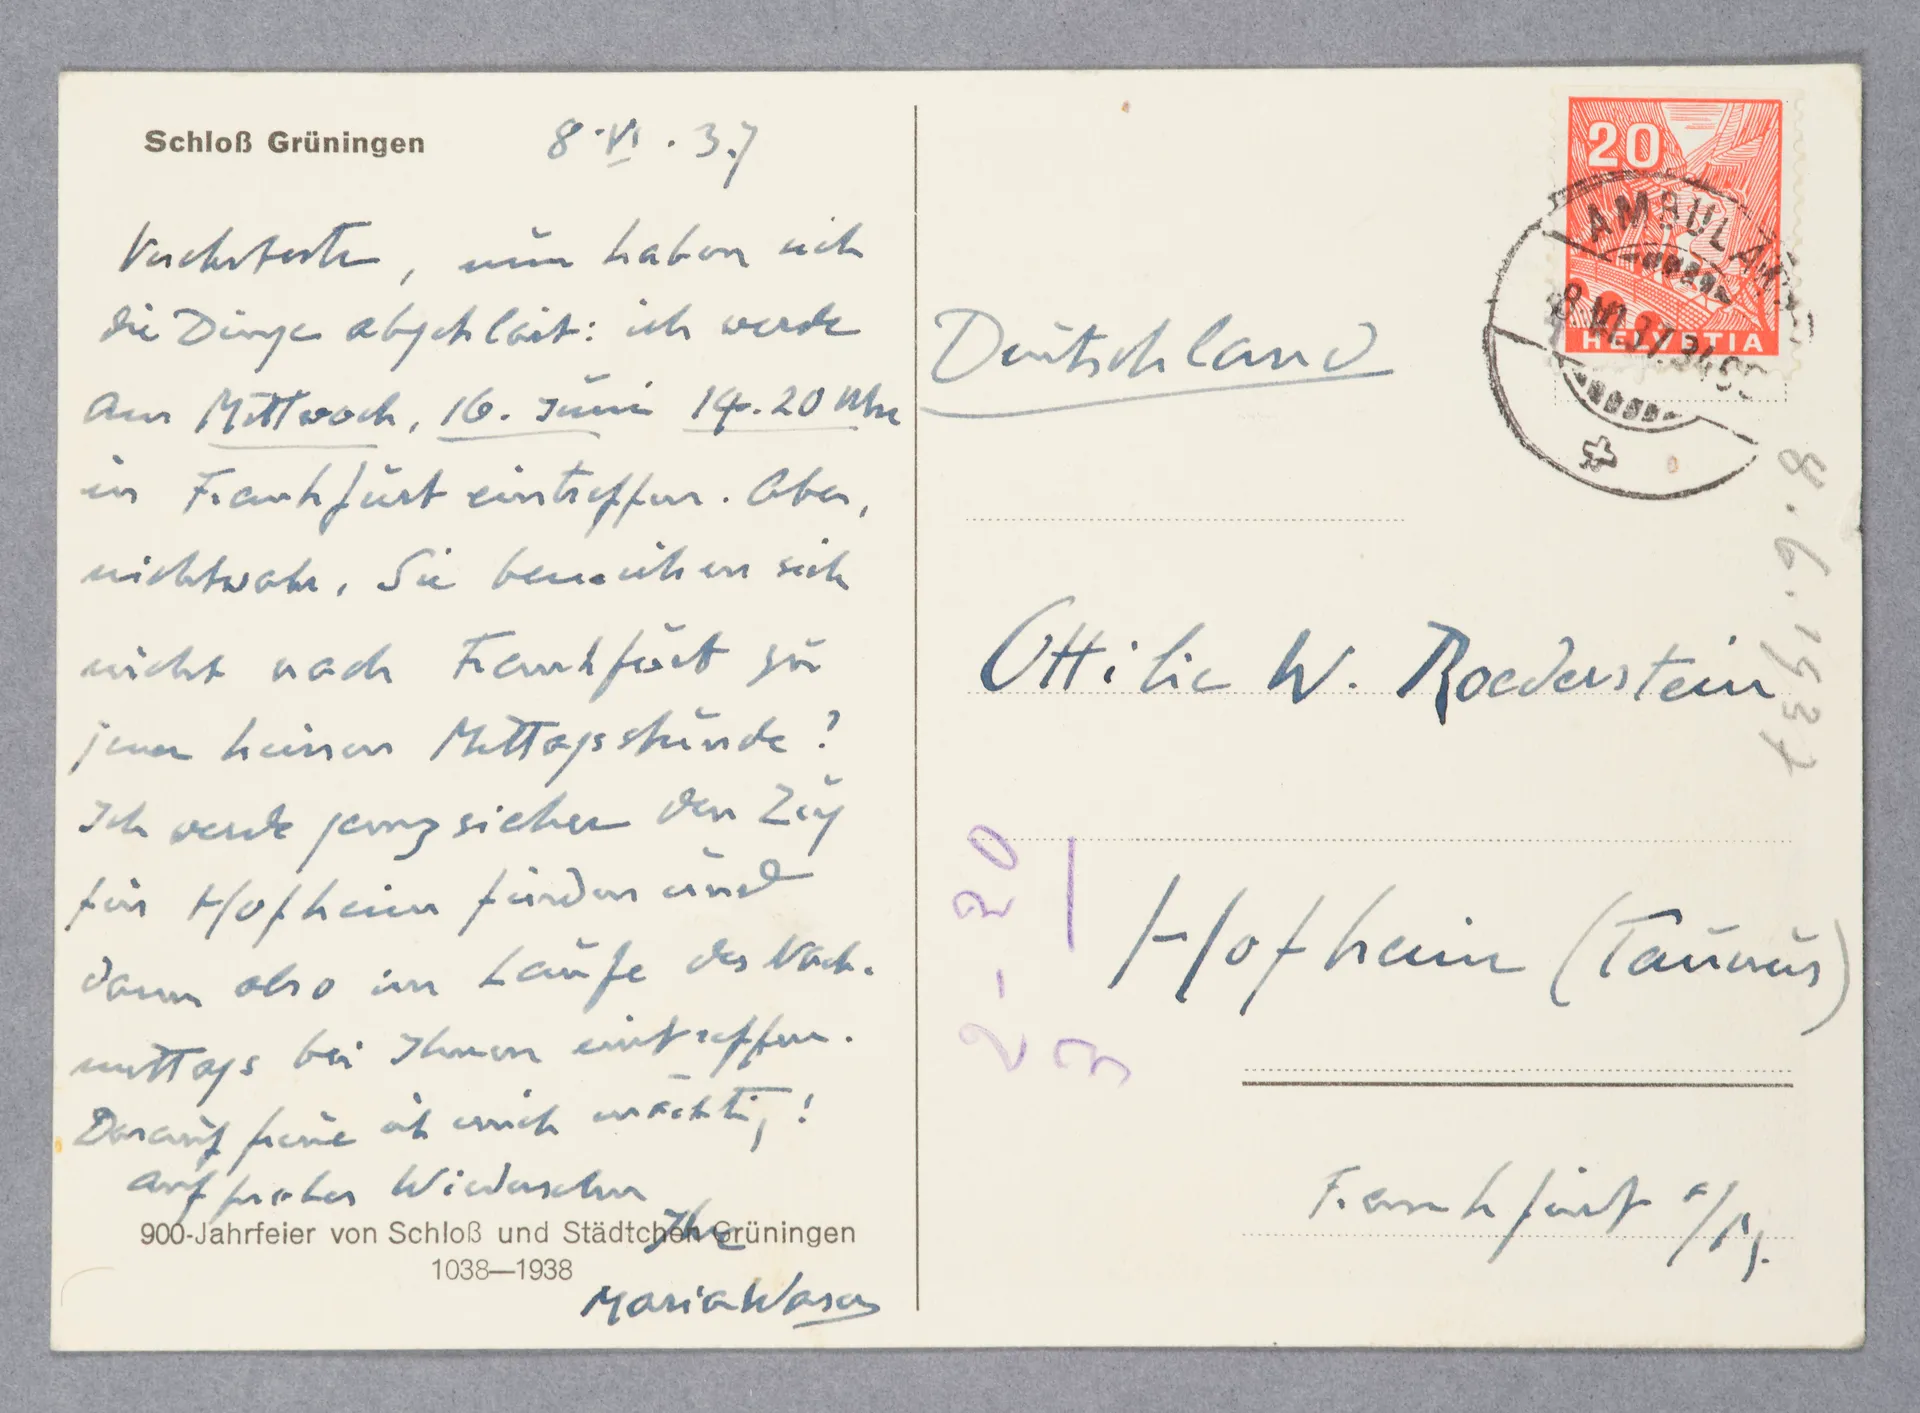 Schloß Grüningen
8.VI.37
Verehrteste, nun haben sich
die Dinge abgeklärt: ich werde
am Mittwoch, 16. Juni 14.20 Uhr
in Frankfurt eintreffen. Aber,
nichtwahr, Sie bemühen sich
nicht nach Frankfurt zu
jener heissen Mittagsstunde?
Ich werde ganz sicher den Zug
für Hofheim finden und
dann also im Laufe des Nach-
mittags bei Ihnen eintreffen.
Darauf freue ich mich mächtig!
Auf frohes Wiedersehen
Ihre
900-Jahrfeier von Schloß und Städtchen Grüningen
1038—1938
Maria Waser
20
HELVETIA
AMBULANT
8.VI.37
Deutschland
8.6.1937
Ottilie W. Roederstein
Hofheim (Taunus)
Frankfurt a/M.
2-20